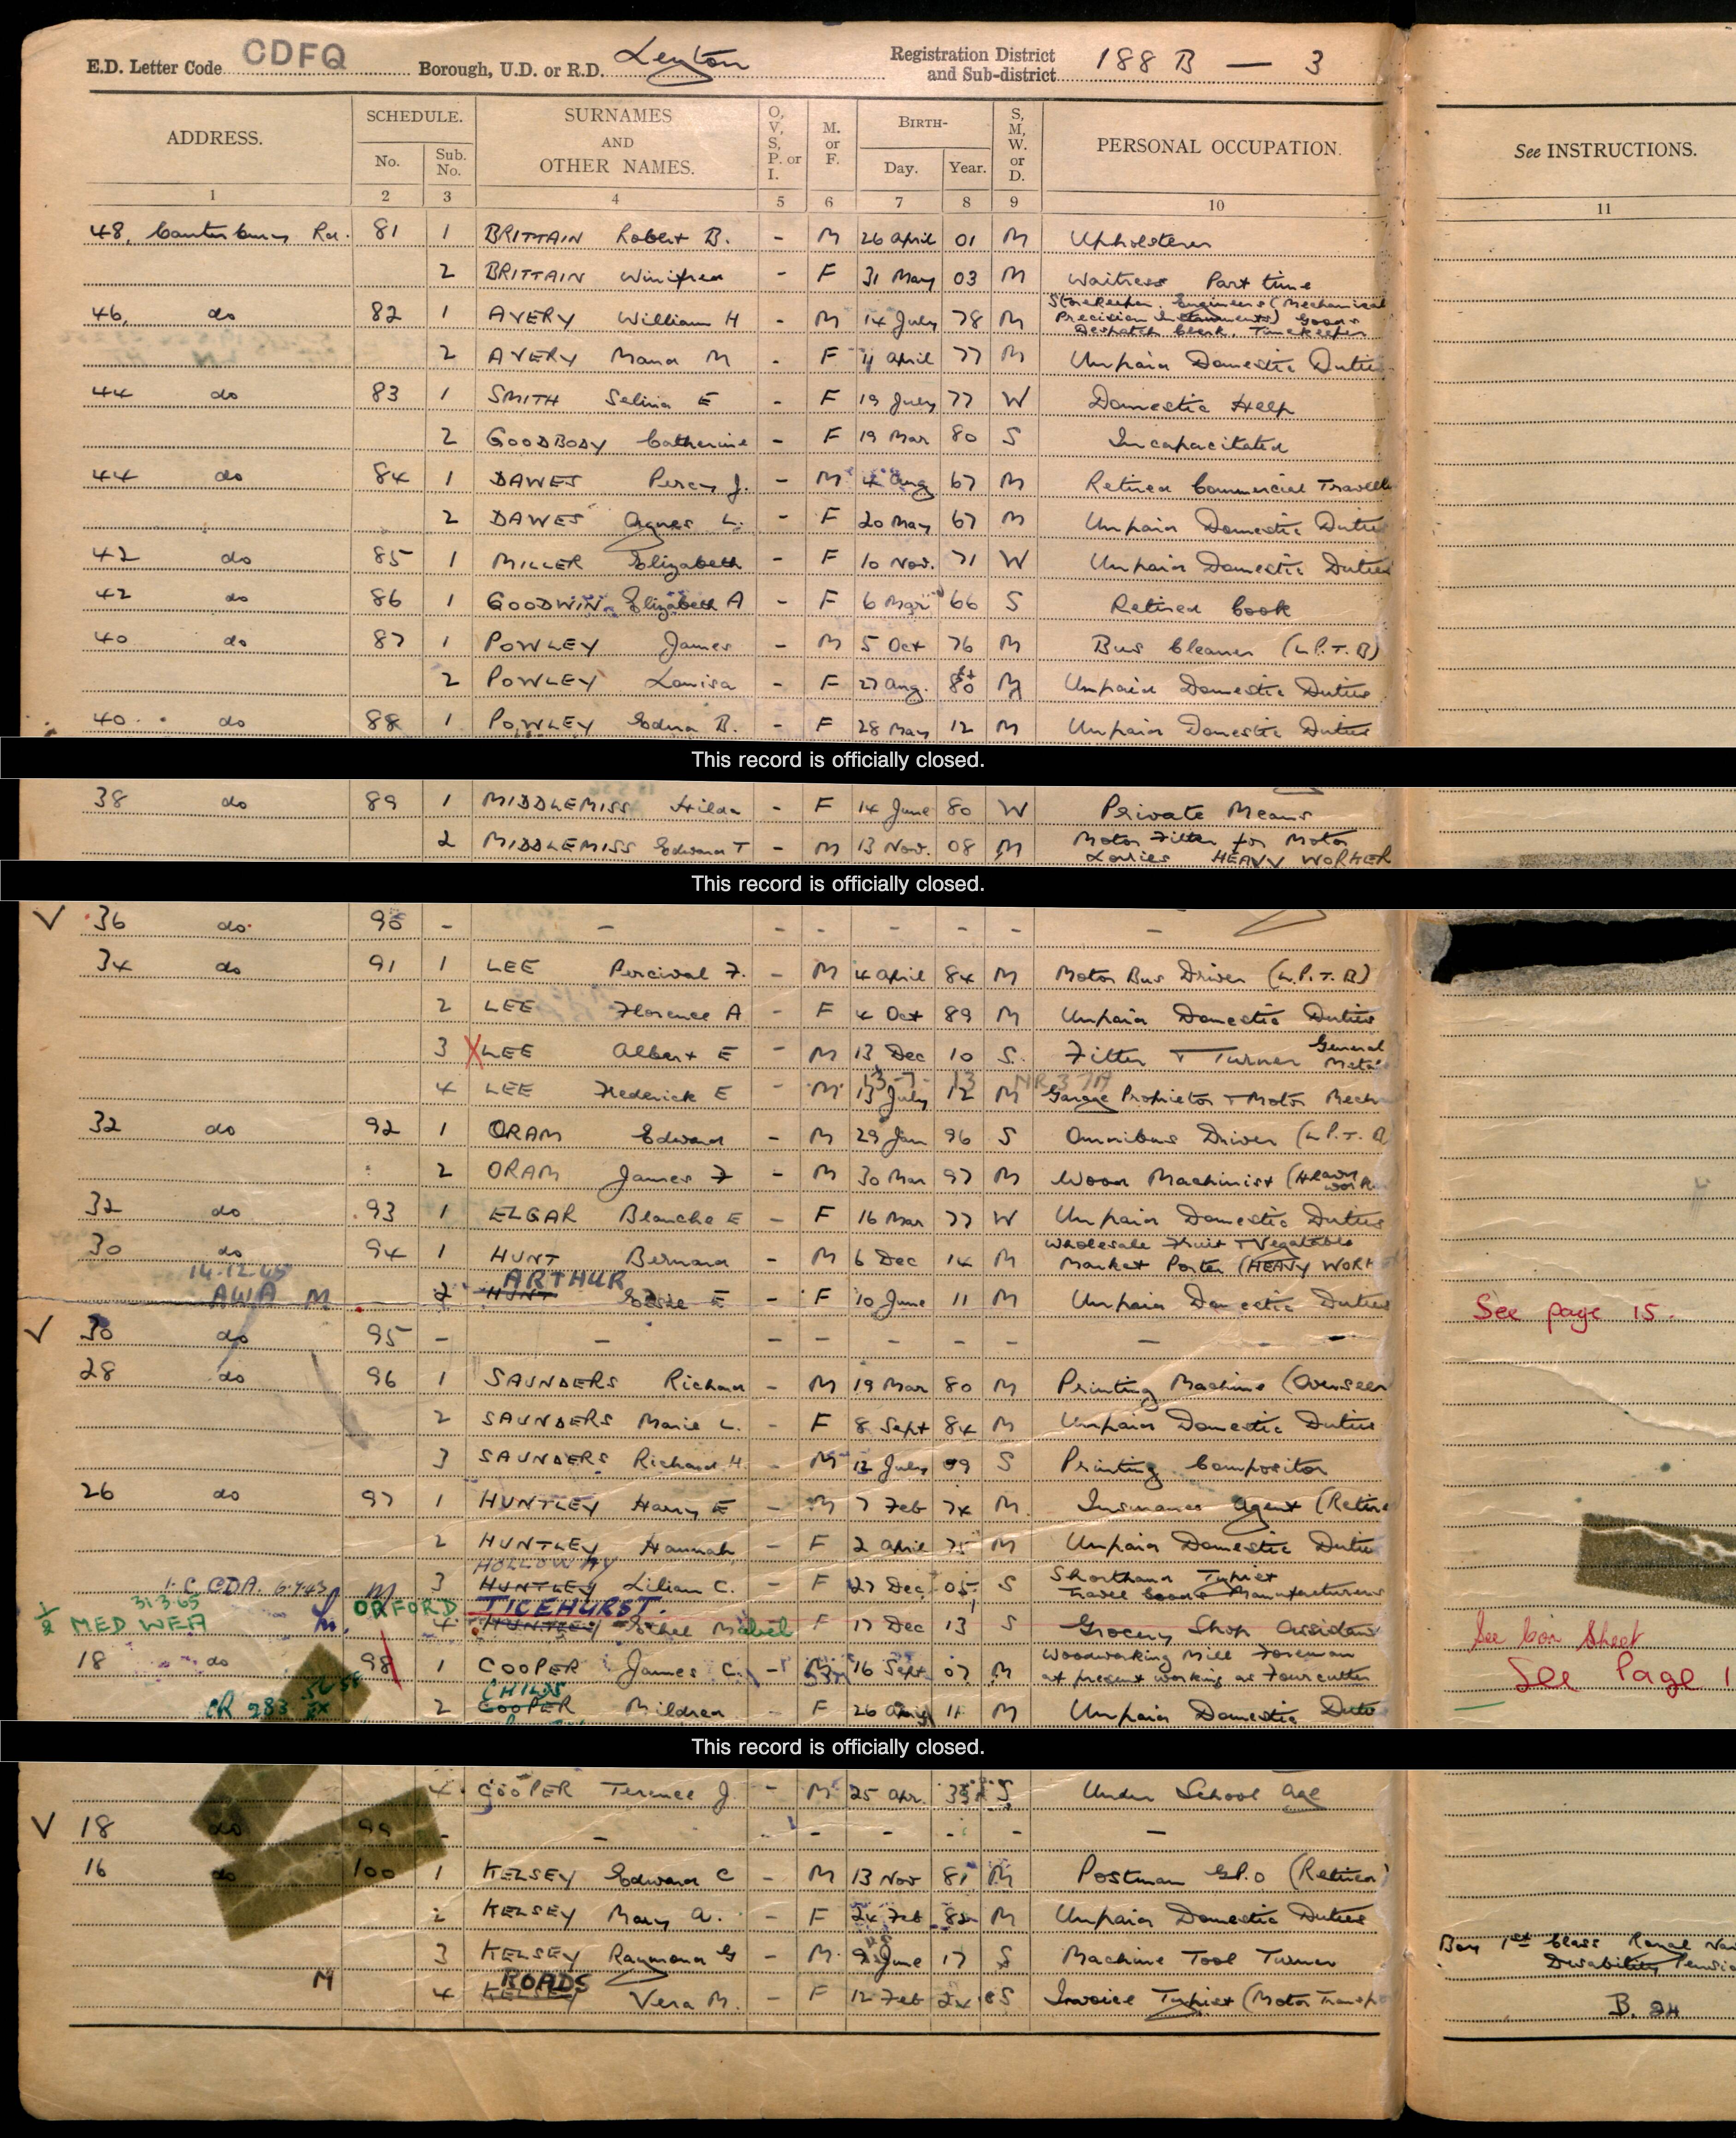 E.D. Letter Code CDFQ Borough, U.D. or R.D. Leyton Registration District and Sub-district 188 B — 3
ADDRESS. SCHEDULE. No. Sub. No. SURNAMES AND OTHER NAMES. O, V, S, P. or I. M. or F. BIRTH- Day. Year. S, M, W. or D. PERSONAL OCCUPATION. See INSTRUCTIONS.
1 2 3 4 5 6 7 8 9 10 11
48, Canterbury Rd. 81 1 BRITTAIN Robert B. - M 26 April 01 M Upholsterer
2 BRITTAIN Winifred - F 31 May 03 M Waitress Part time
46, do 82 1 AVERY William H - M 14 July 78 M Storekeeper. Engineers (Mechanical Precision Instruments) Goods Despatch Clerk, Timekeeper
2 AVERY Maria M - F 4 April 77 M Unpaid Domestic Duties
44 do 83 1 SMITH Selina E - F 19 July 77 W Domestic Help
2 GOODBODY Catherine - F 19 Mar 80 S Incapacitated
44 do 84 1 DAWES Percy J. - M 4 Aug 67 M Retired Commercial Travelle
2 DAWES Agnes L. - F 20 May 67 M Unpaid Domestic Duties
42 do 85 1 MILLER Elizabeth - F 10 Nov. 71 W Unpaid Domestic Duties
42 do 86 1 GOODWIN Elizabeth A - F 6 Mar 66 S Retired Cook
40 do 87 1 POWLEY James - M 5 Oct 76 M Bus Cleaner (L.P.T.B)
2 POWLEY Louisa - F 27 Aug. 80 M Unpaid Domestic Duties
40 do 88 1 POWLEY Edna B. - F 28 May 12 M Unpaid Domestic Duties
This record is officially closed.
38 do 89 1 MIDDLEMISS Hilda - F 14 June 80 W Private Means
2 MIDDLEMISS Edward T - M 13 Nov. 08 M Motor Fitter for Motor Lorries HEAVY WORKER
This record is officially closed.
V 36 do 90 - - - - - - - -
34 do 91 1 LEE Percival F. - M 4 April 84 M Motor Bus Driver (L.P.T.B)
2 LEE Florence A - F 4 Oct 89 M Unpaid Domestic Duties
3 X LEE Albert E - M 13 Dec 10 S. Fitter & Turner General Metal
13-7-13 NR37A
4 LEE Frederick E - M 13 July 12 M Garage Proprietor & Motor Mech
32 do 92 1 ORAM Edward - M 29 Jan 96 S Omnibus Driver (L.P.T.B
2 ORAM James F - M 30 Mar 97 M Wood Machinist (Heavy Work
32 do 93 1 ELGAR Blanche E - F 16 Mar 77 W Unpaid Domestic Duties
30 do 94 1 HUNT Bernard - M 6 Dec 14 M Wholesale Fruit & Vegetable Market Porter (HEAVY WORK
14.12.45 ARTHUR
AWA M 2 HUNT Elsie E - F 10 June 11 M Unpaid Domestic Duties See page 15.
V 30 do 95 - - - - - - - -
28 do 96 1 SAUNDERS Richard - M 19 Mar 80 M Printing Machine (Overseer
2 SAUNDERS Marie L. - F 8 Sept 84 M Unpaid Domestic Duties
3 SAUNDERS Richard H. M 12 July 09 S Printing Compositor
26 do 97 1 HUNTLEY Harry E - M 7 Feb 74 M. Insurance Agent (Retire
2 HUNTLEY Hannah - F 2 April 75 M Unpaid Domestic Dutie
HOLLOWAY
CDA. 6.7.43 M 3 HUNTLEY Lilian C. - F 27 Dec 05 S Shorthand Typist Travel Goods Manufacturers
31.3.65 OXFORD TICEHURST.
1/2 MED WEA 4 HUNTLEY Ethel Mabel F 17 Dec 13 S Grocery Shop Assistant See Con Sheet
18 do 98 1 COOPER James C. - M 16 Sept 07 M Woodworking Mill Foreman at present working as Four cutter See Page 1
CHILDS
CR 283 2 COOPER Mildred - F 26 Aug 11 M Unpaid Domestic Dutie
This record is officially closed.
4 COOPER Terence J. - M 25 Apr. 35 S Under School Age
V 18 do 99 - - - - - - -
16 do 100 1 KELSEY Edward C - M 13 Nov 81 M Postman G.P.O (Retired)
2 KELSEY Mary A. - F 24 Feb 82 M Unpaid Domestic Duties
3 KELSEY Raymond G - M. 9 June 17 S Machine Tool Turner Boy 1st Class Royal Nav Disability Pensio
ROADS
M 4 KELSEY Vera M. - F 12 Feb 24 S Invoice Typist (Motor Transpo B. 24